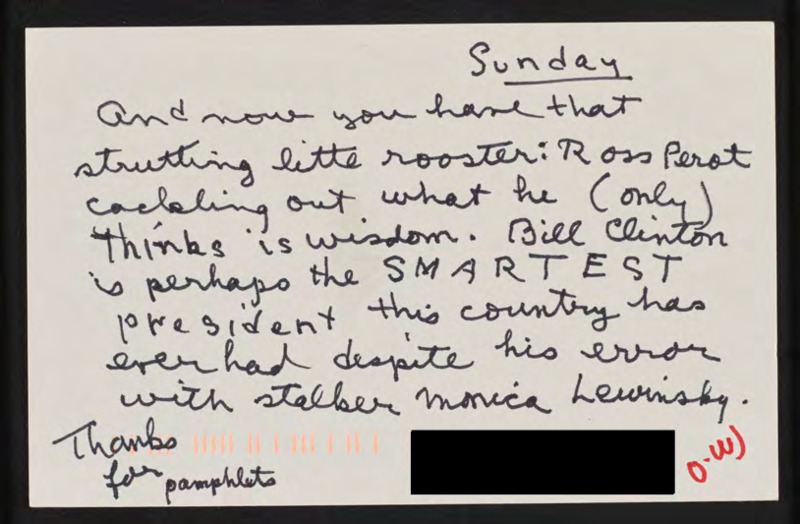 Sunday
And now you have that
strutting litte rooster: Ross Perot
cackling out what he (only)
thinks is wisdom. Bill Clinton
is perhaps the SMARTEST
president this country has
ever had despite his error
with stalker Monica Lewinsky.
Thanks
for pamphlets
O-W)